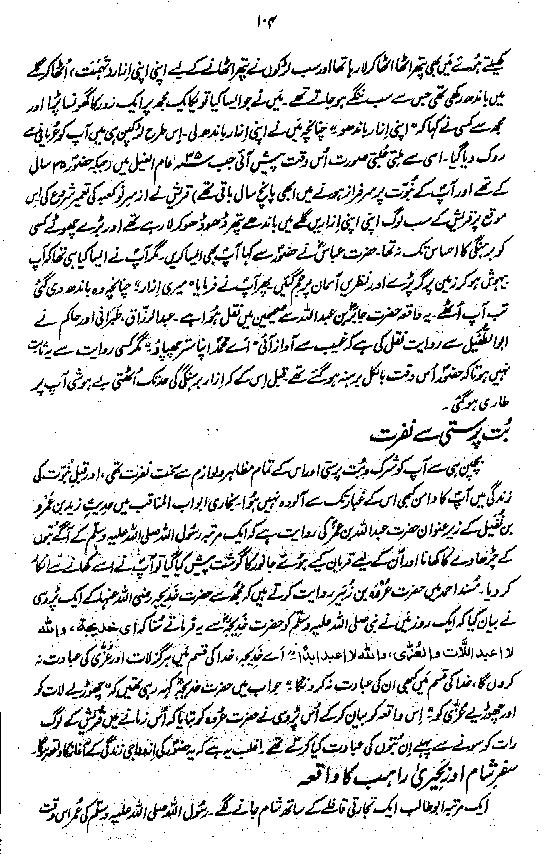 ۱۰۴
کھیلتے ہوئے میں بھی پتھر اٹھا اٹھا کر لا رہا تھا اور سب لڑکوں نے پتھر اٹھانے کے لیے اپنی اپنی ازار (تہمت) اٹھا کر گلے
میں باندھ رکھی تھی جس سے سب ننگے ہو جاتے تھے۔ میں نے جو ایسا کیا تو یکایک مجھ پر ایک زور کا گھونسا پڑا اور
مجھ سے کسی نے کہا کہ "اپنی ازار باندھو"۔ چنانچہ میں نے اپنی ازار باندھ لی۔ اس طرح لڑکپن ہی میں آپ کو عریانی سے
روک دیا گیا۔ اسی سے ملتی جلتی صورت اُس وقت پیش آئی جب ۳۵ عام الفیل میں (جبکہ حضورؐ ۳۵ سال
کے تھے اور آپ کے نبوت پر سرفراز ہونے میں ابھی پانچ سال باقی تھے) قریش نے از سرِ نو کعبہ کی تعمیر شروع کی اس
موقع پر قریش کے سب لوگ اپنی اپنی ازاریں گلے میں باندھے پتھر ڈھو ڈھو کر لا رہے تھے اور بڑے چھوٹے کسی
کو برہنگی کا احساس تک نہ تھا۔ حضرت عباسؓ نے حضورؐ سے کہا آپ بھی ایسا کریں۔ مگر آپ نے ایسا کیا ہی تھا کہ آپ
بیہوش ہو کر زمین پر گر پڑے اور نظریں آسمان پر جم گئیں پھر آپ نے فرمایا "میری ازار" چنانچہ وہ باندھ دی گئی
تب آپ اُٹھے۔ یہ واقعہ حضرت جابر بن عبداللہ سے صحیحین میں نقل ہوا ہے۔ عبدالرزاق، طبرانی اور حاکم نے
ابوالطفیل سے روایت نقل کی ہے کہ غیب سے آواز آئی "اے محمدؐ اپنا ستر چھپاؤ"۔ مگر کسی روایت سے یہ ثابت
نہیں ہوتا کہ حضورؐ اُس وقت بالکل برہنہ ہو گئے تھے قبل اس کے کہ ازار برہنگی کی حد تک اُٹھتی بے ہوشی آپ پر
طاری ہو گئی۔
بُت پرستی سے نفرت
بچپن ہی سے آپ کو شرک و بُت پرستی اور اس کے تمام مظاہر و لوازم سے سخت نفرت تھی، اور قبلِ نبوت کی
زندگی میں آپ کا دامن کبھی اس کے غبار تک سے آلودہ نہیں ہوا بخاری ابواب المناقب میں حدیث زید بن عمرو
بن نُفیل کے زیر عنوان حضرت عبداللہ بن عمر کی روایت ہے کہ ایک مرتبہ رسول اللہ صلی اللہ علیہ وسلم کے آگے بتوں
کے چڑھاوے کا کھانا اور اُن کے لیے قربان کیے ہوئے جانور کا گوشت پیش کیا گیا تو آپ نے اسے کھانے سے انکار
کر دیا۔ مُسند احمد میں حضرت عروہ بن زبیر روایت کرتے ہیں کہ مجھ سے حضرت خدیجہ رضی اللہ عنہا کے ایک پڑوسی
نے بیان کیا کہ ایک روز میں نے نبی صلی اللہ علیہ وسلم کو حضرت خدیجہ سے یہ فرماتے سُنا کہ ای خدیجۃ، واللہ
لا اعبد اللات والعزّٰی، واللہ لا اعبد ابدًا۔ "اے خدیجہ، خدا کی قسم میں ہرگز لات اور عزّی کی عبادت نہ
کروں گا، خدا کی قسم میں کبھی ان کی عبادت نہ کروں گا" جواب میں حضرت خدیجہؓ کہہ رہی تھیں کہ "چھوڑیے لات کو
اور چھوڑیے عزّی کو" اس واقعہ کو بیان کر کے اُس پڑوسی نے حضرت عروہ کو بتایا کہ اُس زمانے میں قریش کے لوگ
رات کو سونے سے پہلے اِن بتوں کی عبادت کیا کرتے تھے۔ اغلب یہ ہے کہ یہ حضورؐ کی ازدواجی زندگی کے آغاز کا واقعہ ہوگا۔
سفرِ شام اور بحیریٰ راہب کا واقعہ
ایک مرتبہ ابوطالب ایک تجارتی قافلے کے ساتھ شام جانے لگے۔ رسول اللہ صلی اللہ علیہ وسلم کی عمر اس وقت